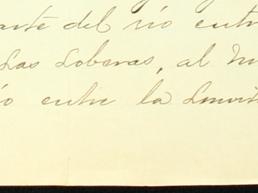 arte del río entr
Las Loberas, al
o entre la